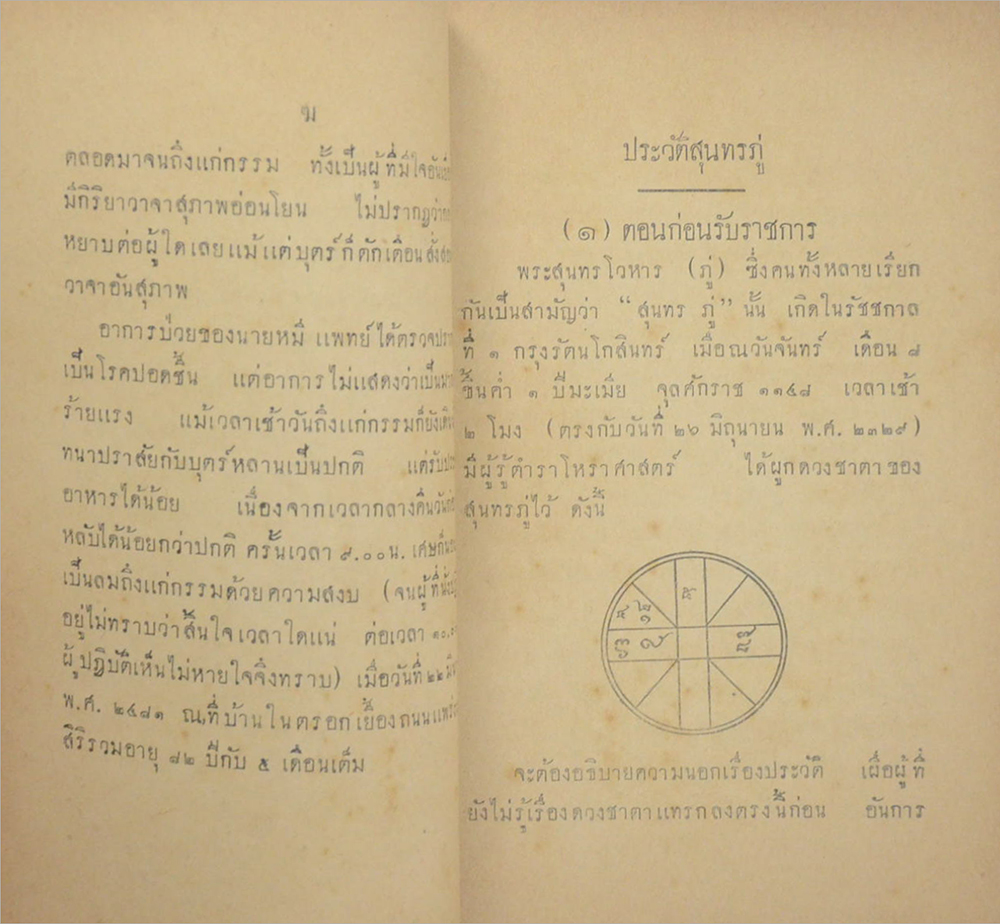 ฆ
ตลอดมาจนถึงแก่กรรม ทั้งเป็นผู้ที่มีใจ
มีกิริยาวาจาสุภาพอ่อนโยน ไม่ปรากฏ
หยาบต่อผู้ใดเลยแม้แต่บุตร์ก็ตักเตือน
วาจาอันสุภาพ
อาการป่วยของนายหมี แพทย์ได้ตรวจ
เป็นโรคปอดชื้น แต่อาการไม่แสดงว่าเป็น
ร้ายแรง แม้เวลาเช้าวันถึงแก่กรรมก็ยัง
ทนาปราสัยกับบุตร์หลานเป็นปกติ แต่
อาหารได้น้อย เนื่องจากเวลากลางคืน
หลับได้น้อยกว่าปกติ ครั้นเวลา ๙.๐๐น.
เป็นลมถึงแก่กรรมด้วยความสงบ (จนผู้ที่
อยู่ไม่ทราบว่าสิ้นใจเวลาใดแน่ ต่อเวลา
ผู้ปฏิบัติเห็นไม่หายใจจึงทราบ) เมื่อวันที่ ๒๒
พ.ศ. ๒๔๘๑ ณที่บ้านในตรอกเยื้องถนน
สิริรวมอายุ ๘๒ ปีกับ ๕ เดือนเต็ม
ประวัติสุนทรภู่
(๑) ตอนก่อนรับราชการ
พระสุนทรโวหาร (ภู่) ซึ่งคนทั้งหลายเรียก
กันเป็นสามัญว่า “สุนทร ภู่” นั้น เกิดในรัชชกาล
ที่ ๑ กรุงรัตนโกสินทร์ เมื่อณวันจันทร์ เดือน ๘
ขึ้นค่ำ ๑ ปีมะเมีย จุลศักราช ๑๑๔๘ เวลาเช้า
๒ โมง (ตรงกับวันที่ ๒๖ มิถุนายน พ.ศ. ๒๓๒๙)
มีผู้รู้ตำราโหราศาสตร์ ได้ผูกดวงชาตาของ
สุนทรภู่ไว้ ดังนี้
จะต้องอธิบายความนอกเรื่องประวัติ เผื่อผู้ที่
ยังไม่รู้เรื่องดวงชาตาแทรกลงตรงนี้ก่อน อันการ